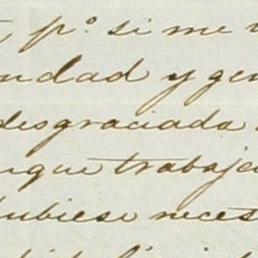 , p.º si me v
ndad y gen
desgraciada
nque trabaja
hubiese neces